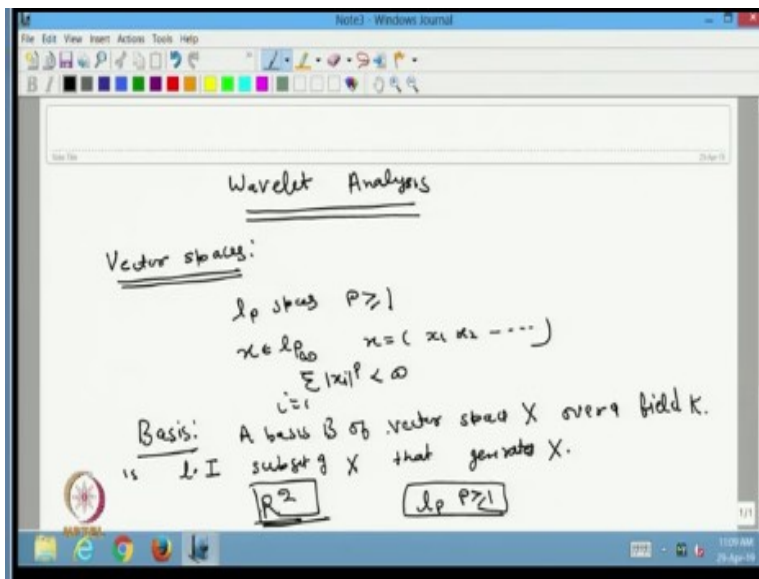 Note3 - Windows Journal
File Edit View Insert Actions Tools Help
B I
Note Title
29-Apr-19
Wavelet Analysis
Vector spaces:
lp spaces P≥1
x ∈ lp x = ( x1 x2 ----- )
∞
Σ |xi|^p < ∞
i=1
Basis: A basis B of vector space X over a field K.
is l.I subset of X that generates X.
R^2 lp P≥1
1/1
NPTEL
11:09 AM
29-Apr-19